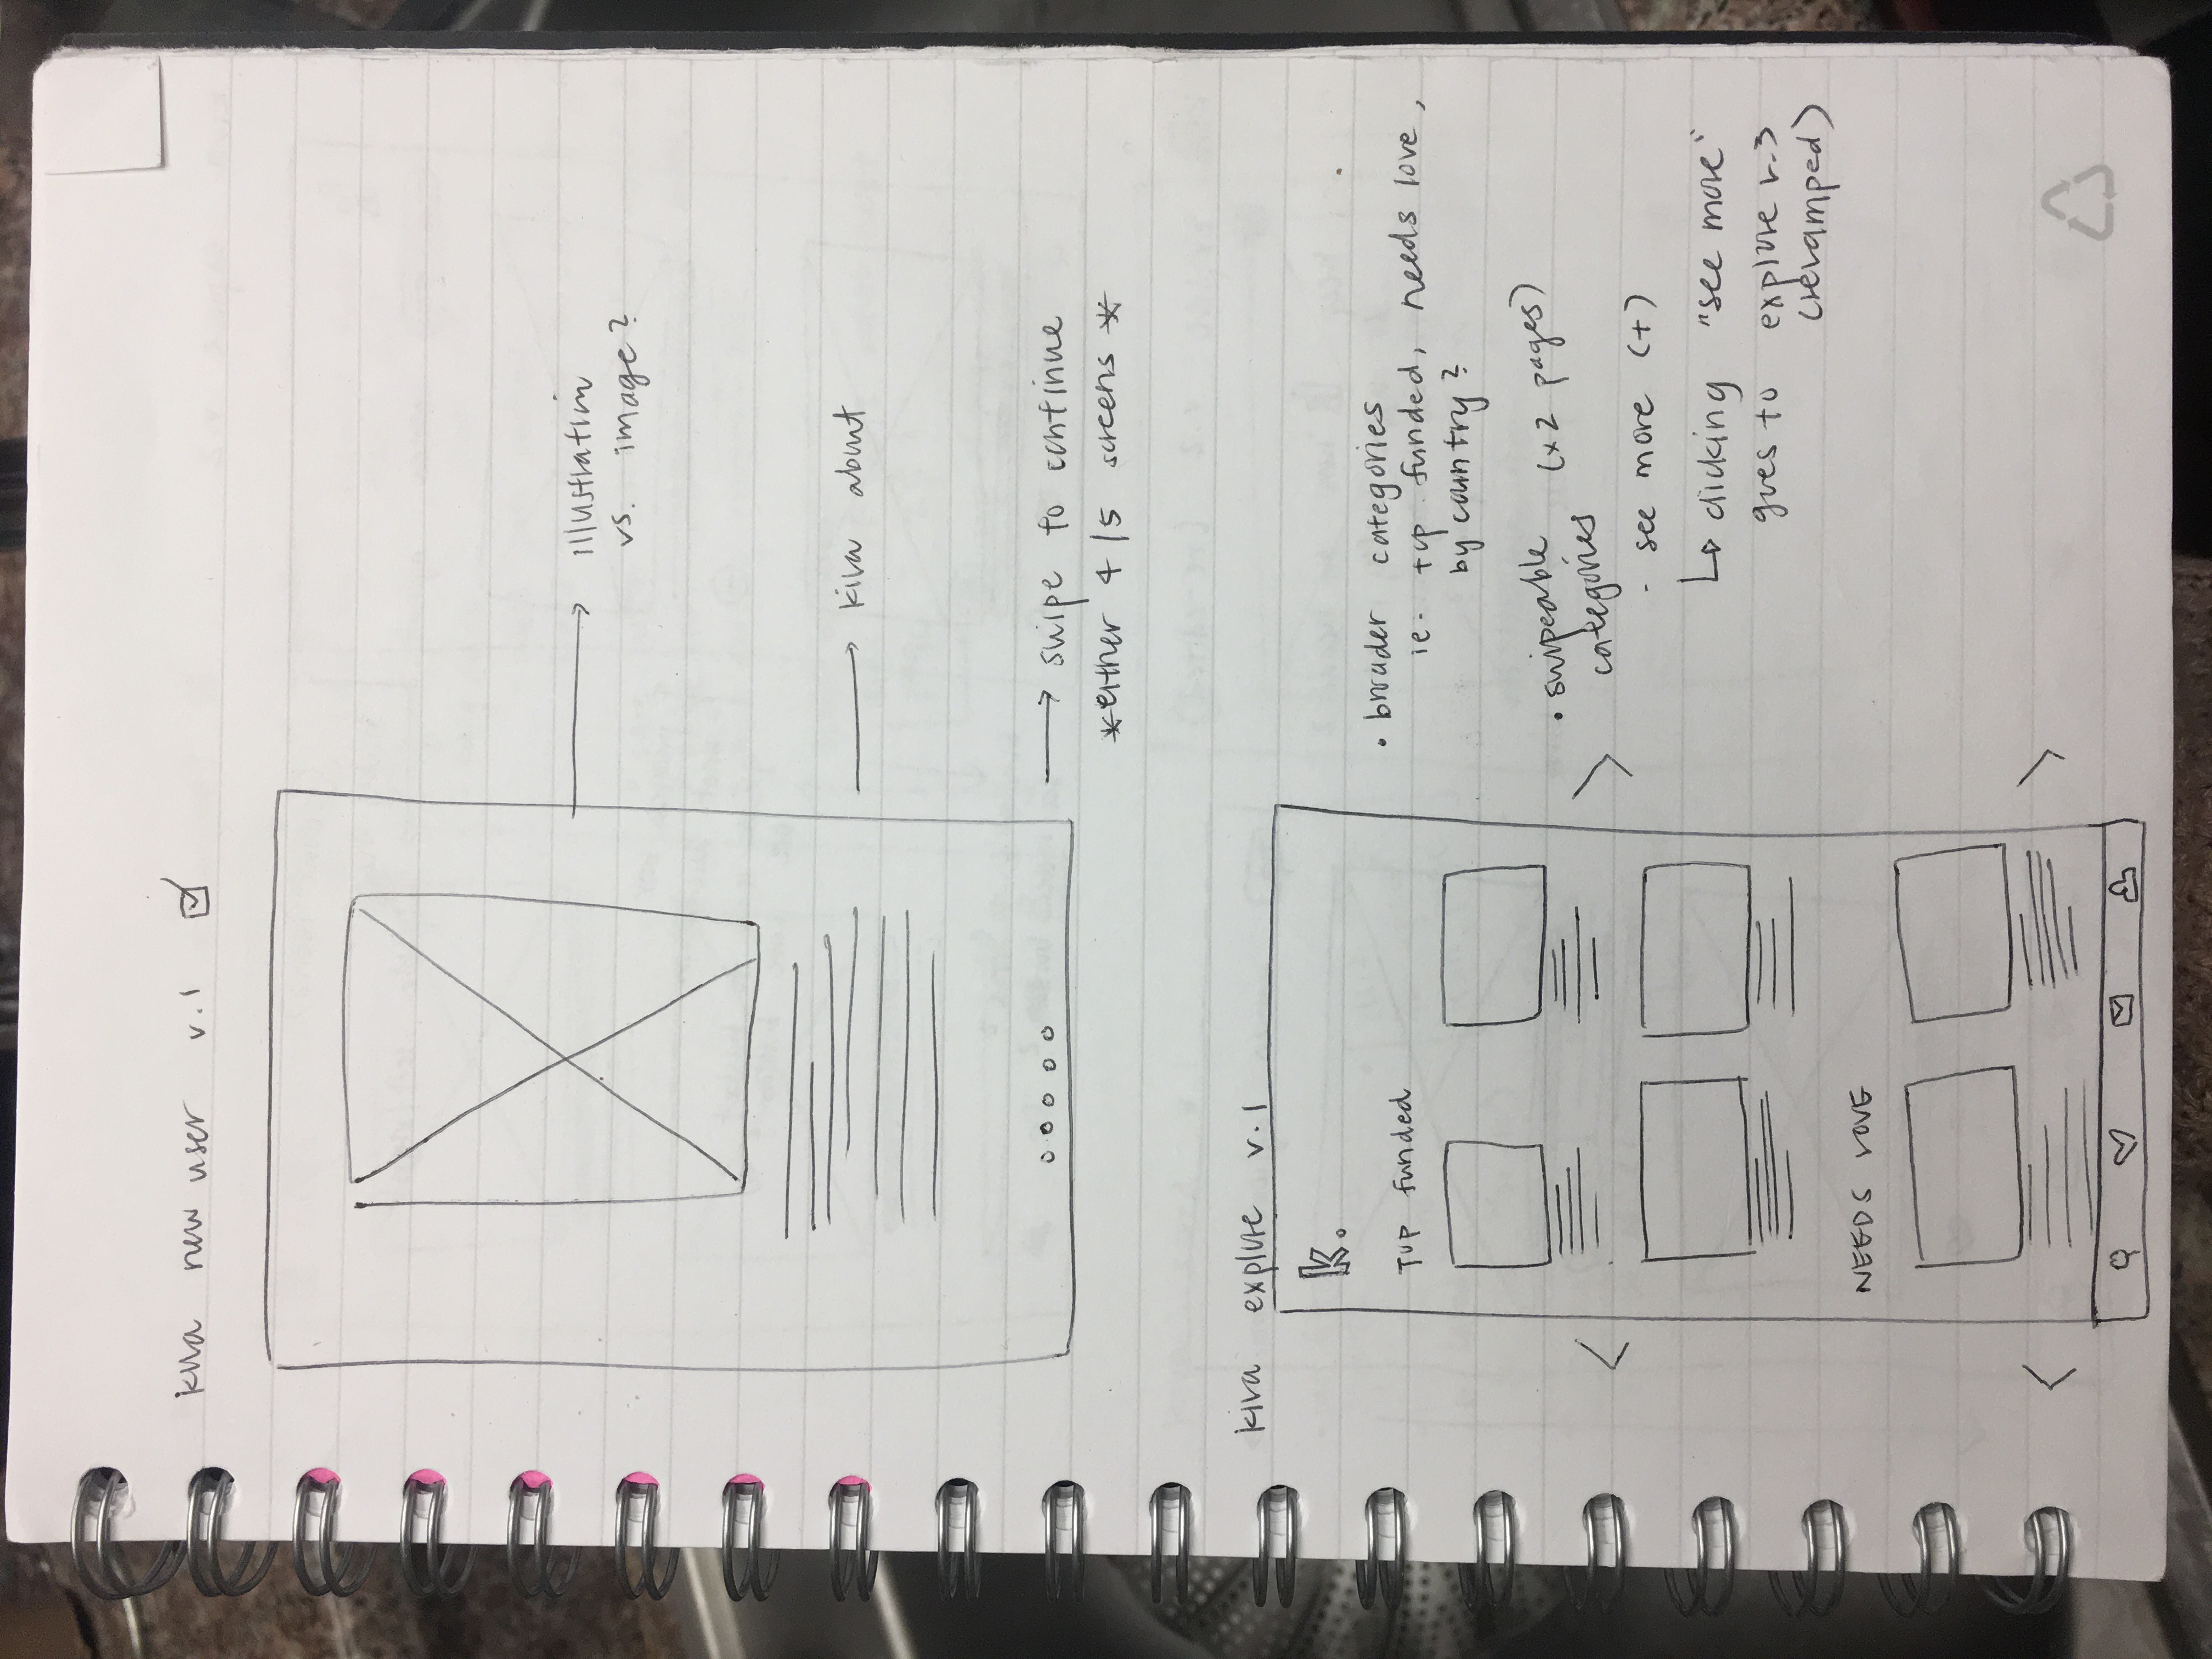 kiva new user v.1
illustration
vs. image?
kiva about
swipe to continue
*either 4/5 screens *
kiva explore v.1
k.
Top funded
• broader categories
ie. top funded, needs love,
by country?
• swipeable (x2 pages)
categories
- see more (+)
clicking "see more"
goes to explore v.3
(revamped)
NEEDS LOVE